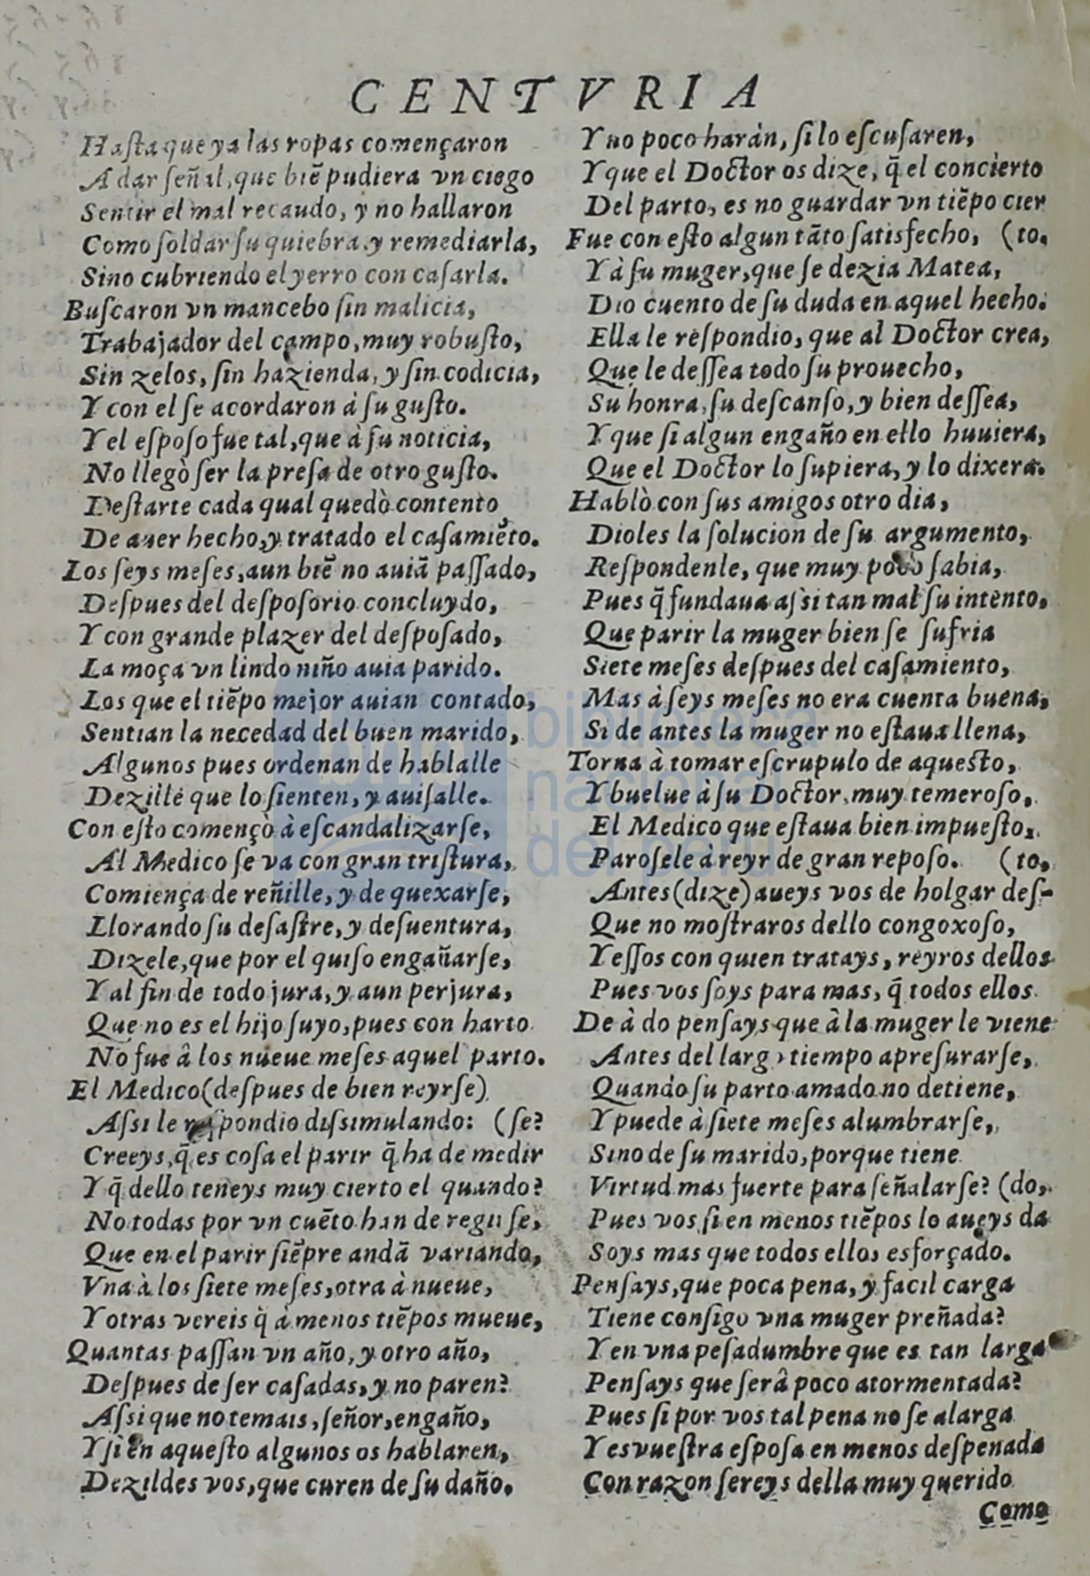 CENTVRIA
Hasta que ya las ropas començaron
A dar señal, que biẽ pudiera vn ciego
Sentir el mal recaudo, y no hallaron
Como soldar su quiebra y remediarla,
Sino cubriendo el yerro con casarla.
Buscaron vn mancebo sin malicia,
Trabajador del campo, muy robusto,
Sin zelos, sin hazienda, y sin codicia,
Y con el se acordaron à su gusto.
Y el esposo fue tal, que à su noticia,
No llegò ser la presa de otro gusto.
Destarte cada qual quedò contento
De auer hecho, y tratado el casamiẽto.
Los seys meses, aun biẽ no auiã passado,
Despues del desposorio concluydo,
Y con grande plazer del desposado,
La moça vn lindo niño auia parido.
Los que el tiẽpo mejor auian contado,
Sentian la necedad del buen marido,
Algunos pues ordenan de hablalle
Dezille que lo sienten, y auisalle.
Con esto començò à escandalizarse,
Al Medico se va con gran tristura,
Comiença de reñille, y de quexarse,
Llorando su desastre, y desuentura,
Dizele, que por el quiso engañarse,
Y al fin de todo jura, y aun perjura,
Que no es el hijo suyo, pues con harto
No fue â los nueue meses aquel parto.
El Medico (despues de bien reyrse)
Assi le respondio dissimulando: (se?
Creeys, q̃ es cosa el parir q̃ ha de medir
Y q̃ dello teneys muy cierto el quando?
No todas por vn cuẽto han de regirse,
Que en el parir siẽpre andã variando,
Vna à los siete meses, otra à nueue,
Y otras vereis q̃ à menos tiẽpos mueue,
Quantas passan vn año, y otro año,
Despues de ser casadas, y no paren?
Assi que no temais, señor, engaño,
Y si en aquesto algunos os hablaren,
Dezildes vos, que curen de su daño.
Y no poco haràn, si lo escusaren,
Y que el Doctor os dize, q̃ el concierto
Del parto, es no guardar vn tiẽpo cier
Fue con esto algun tãto satisfecho, (to.
Y à su muger, que se dezia Matea,
Dio cuento de su duda en aquel hecho.
Ella le respondio, que al Doctor crea,
Que le dessea todo su prouecho,
Su honra, su descanso, y bien dessea,
Y que si algun engaño en ello huuiera,
Que el Doctor lo supiera, y lo dixera.
Hablò con sus amigos otro dia,
Dioles la solucion de su argumento,
Respondenle, que muy poco sabia,
Pues q̃ fundaua assi tan mal su intento,
Que parir la muger bien se sufria
Siete meses despues del casamiento,
Mas à seys meses no era cuenta buena,
Si de antes la muger no estaua llena,
Torna à tomar escrupulo de aquesto,
Y buelue à su Doctor, muy temeroso,
El Medico que estaua bien impuesto,
Parosele à reyr de gran reposo. (to,
Antes (dize) aueys vos de holgar des-
Que no mostraros dello congoxoso,
Y essos con quien tratays, reyros dellos
Pues vos soys para mas, q̃ todos ellos
De à do pensays que à la muger le viene
Antes del largo tiempo apresurarse,
Quando su parto amado no detiene,
Y puede à siete meses alumbrarse,
Sino de su marido, porque tiene
Virtud mas fuerte para señalarse? (do,
Pues vos, si en menos tiẽpos lo aueys da
Soys mas que todos ellos esforçado.
Pensays, que poca pena, y facil carga
Tiene consigo vna muger preñada?
Y en vna pesadumbre que es tan larga
Pensays que serâ poco atormentada?
Pues si por vos tal pena no se alarga
Y es vuestra esposa en menos despenada
Con razon sereys della muy querido
Como
biblioteca
nacional
del perú